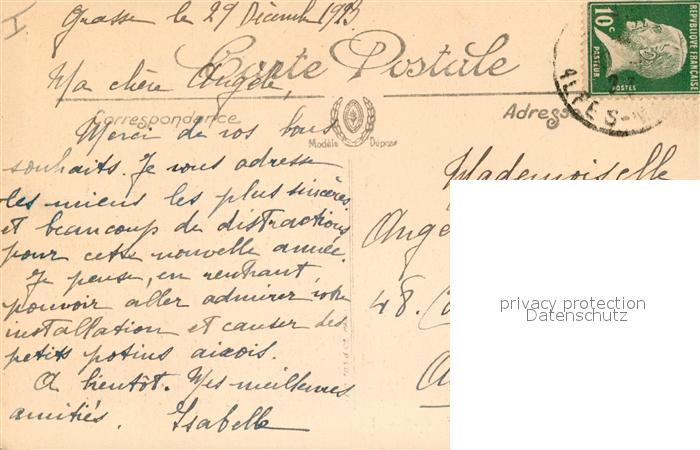 Grasse le 29 Décembre 1923
Carte Postale
Ma chère Angèle,
Correspondance
Adresse
Modèle Déposé
Merci de vos bons
souhaits. Je vous adresse
les miens les plus sincères
et beaucoup de distractions
pour cette nouvelle année.
Je pense, en rentrant,
pouvoir aller admirer votre
installation et causer des
petits potins aixois.
A bientôt. Mes meilleures
amitiés. Isabelle
Mademoiselle
Ange
48.
privacy protection
Datenschutz
10c
PASTEUR
POSTES
REPUBLIQUE FRANÇAISE
ALPES-M